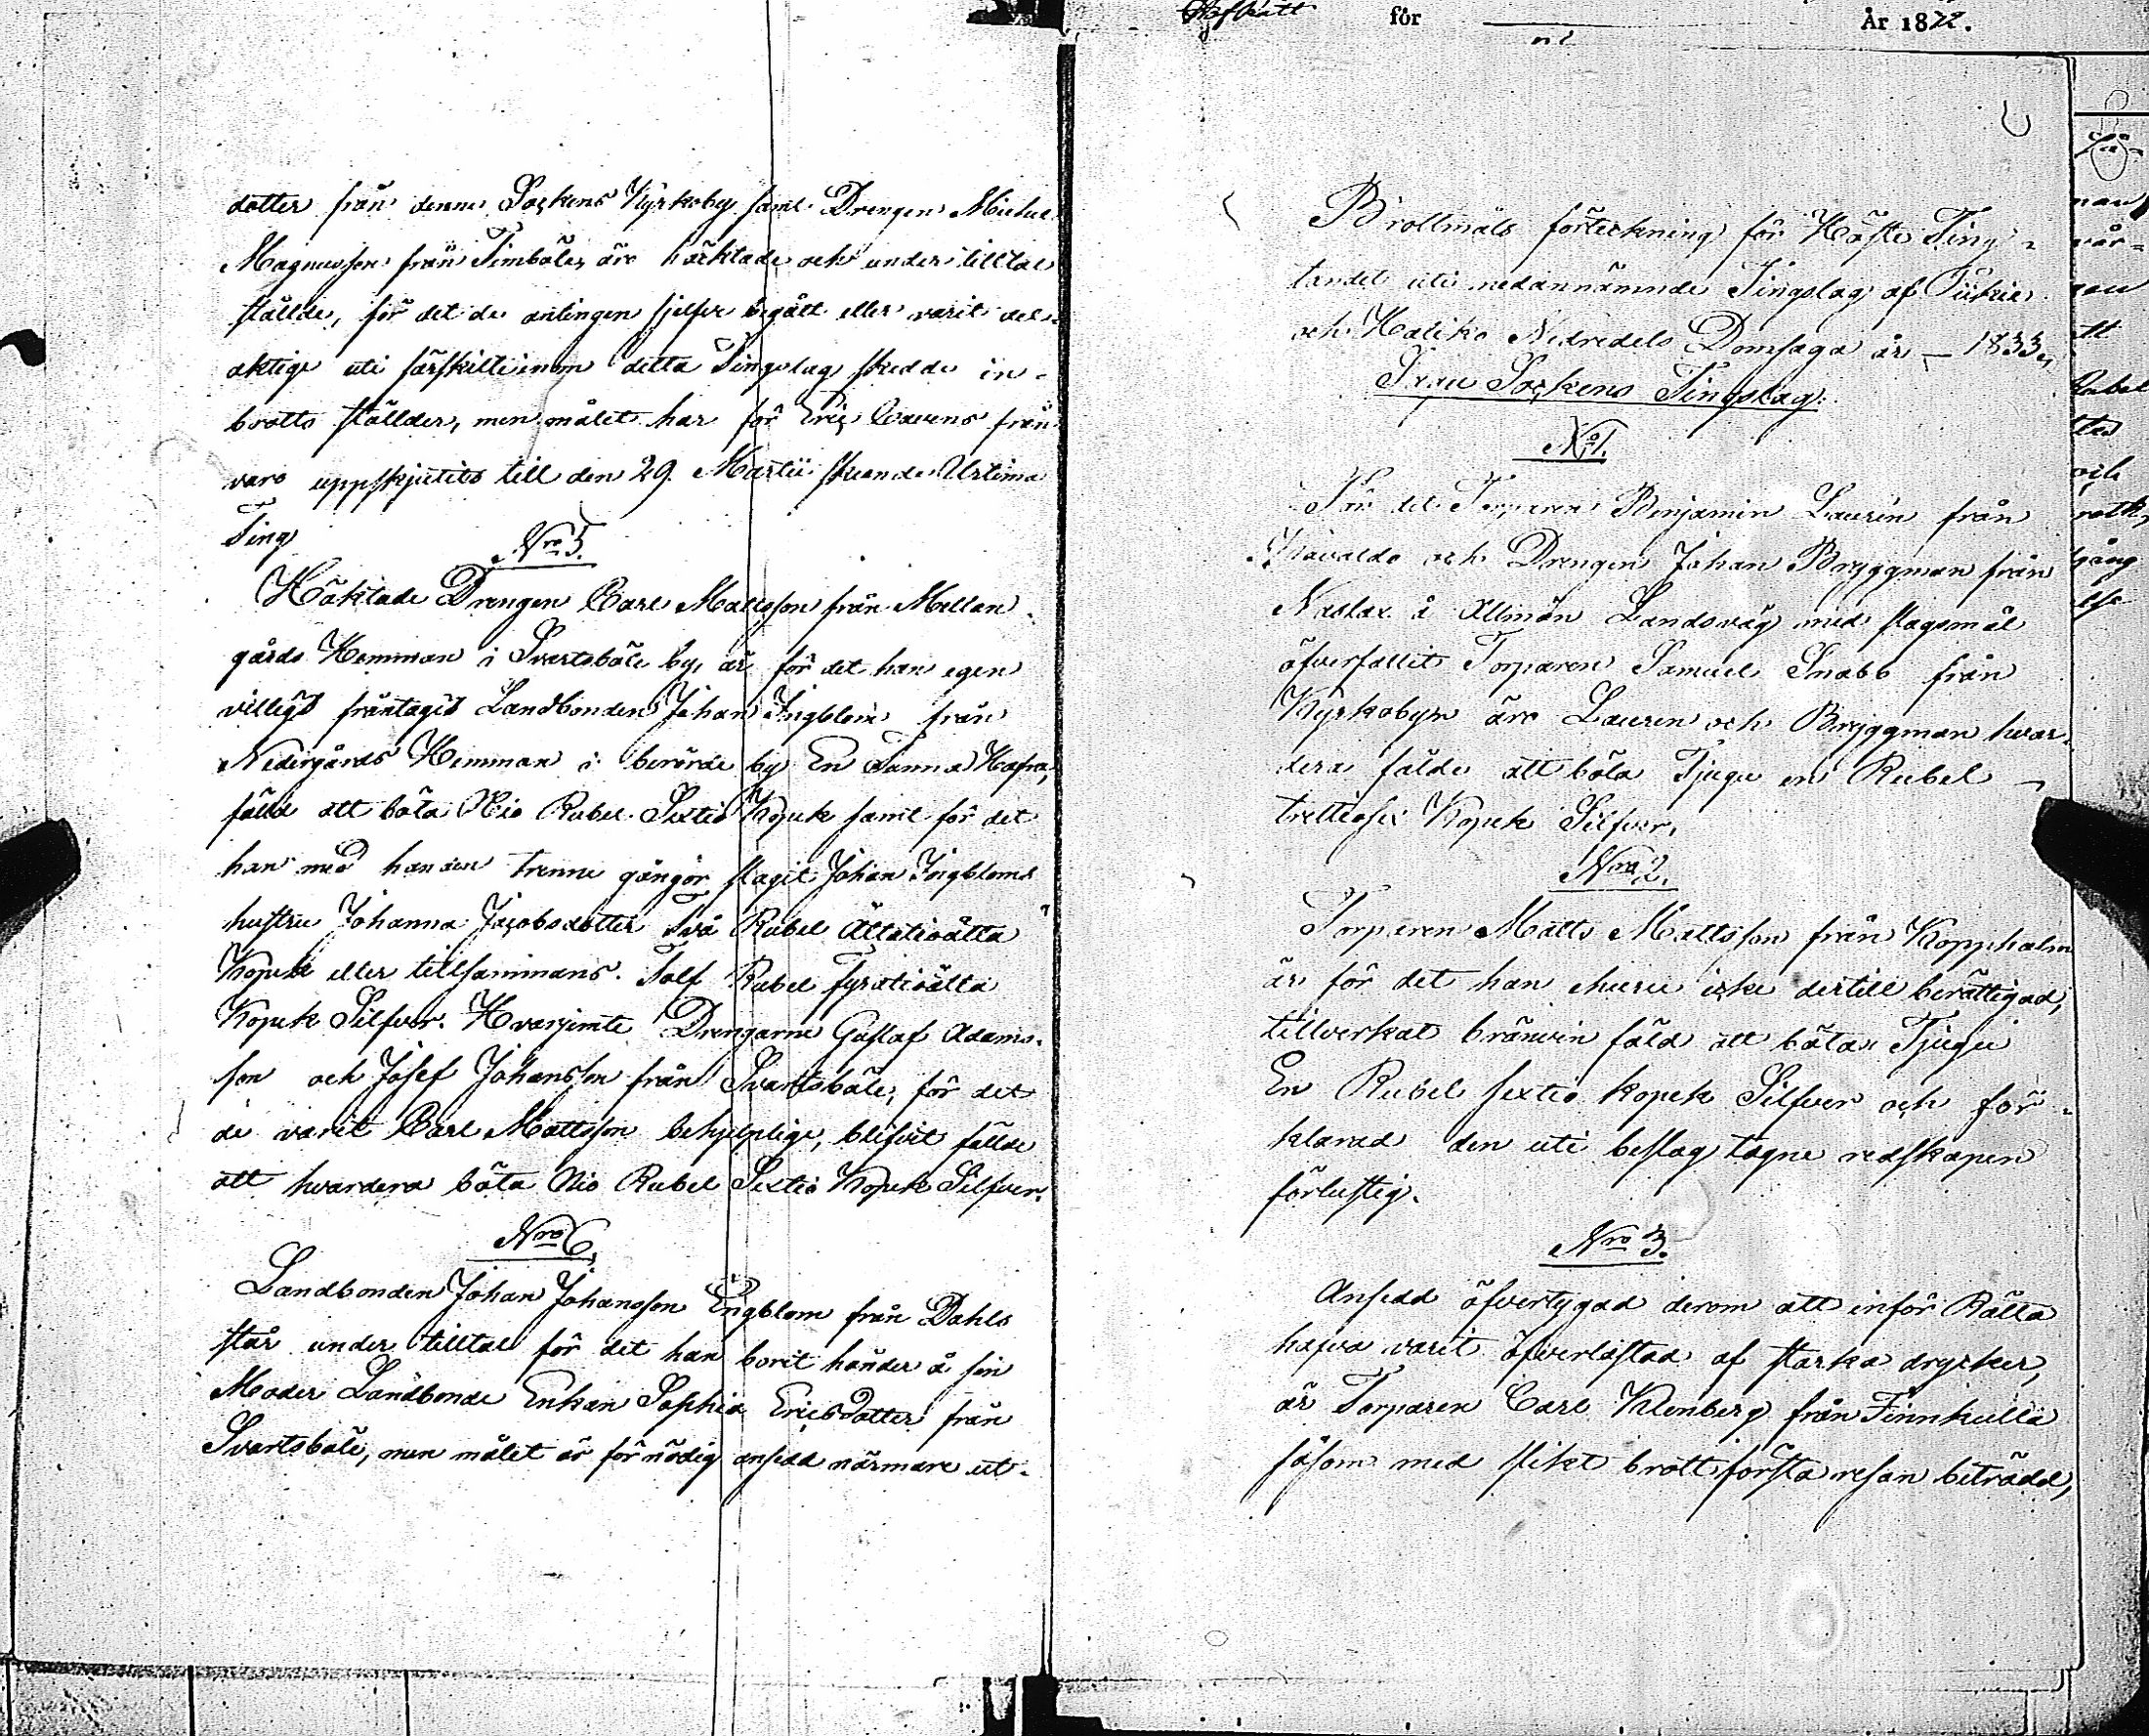 dotter från denne Sockens Kyrkoby samt Drengen Michel
Magnusson från Timböle, äro häcktade och under tilltal
stälde, för det de antingen sjelfve begått eller varit del-
aktige uti särskilte inom detta Tingslag skedde in-
brotts stöllder, men målet har för Eric Cavens från
varo uppskjutits till den 29. Martii skeende Urtima
Ting
Nro 5.
Häktade Drengen Carl Mattsson från Mellan-
gårds Hemman i Svartsböle by, är för det han egen
villigt fråntagit Landbonden Johan Ingblom från
Nedergårds Hemman i berörde by En Tunna Hafra,
fälld att böta Nio Rubel Sextio Kopek samt för det
han med handen trenne gångor slagit Johan Ingbloms
hustru Johanna Jacobsdotter Två Rubel Åttatioåtta
Kopek eller tillsammans Tolf Rubel fyratioåtta
Kopek Silfver. Hvarjemte Drengarne Gustaf Adams-
son och Josef Johansson från Svartsböle, för det
de varit Carl Mattsson behjelplige, blifvit fällde
att hvardera böta Nio Rubel Sextio Kopek Silfver.
Nro 6.
Landbonden Johan Johansson Engblom från Dahls
står under tilltal för det han borit händer å sin
Moder Landbonde Enkan Sophia Ericsdotter från
Svartsböle, men målet är för nödig ansedd närmare ut-
Hofrätt för År 1822.
Brottmåls förteckning för Höste Ting-
tandet uti nedannämnde Tingslag af Pikie
och Haliko Nedredels Domsaga år 1833,
Sockens Tingslag.
No 1.
För det Torparen Benjamin Laurén från
och Drengen Johan Bryggman från
å Allmän Landsväg med slagsmål
öfverfallit Torparen Samuel Snabb från
Kyrkobyn äro Lauren och Bryggman hvar-
dera fälde att böta Tjugu en Rubel
trettiosex Kopek Silfver.
Nro 2.
Torparen Matts Mattsson från Koppholm
är för det han ehuru icke dertill berättigad,
tillverkat bränvin fäld att böta Tjugu
En Rubel sextio kopek Silfver och för-
klarad den uti beslag tagne redskapen
förlustig.
Nro 3.
Ansedd öfvertygad derom att inför Rätta
hafva varit öfverlastad af starka drycker,
är Torparen Carl Klenberg från Finnkulla
såsom med slikt brott första resan beträdd,